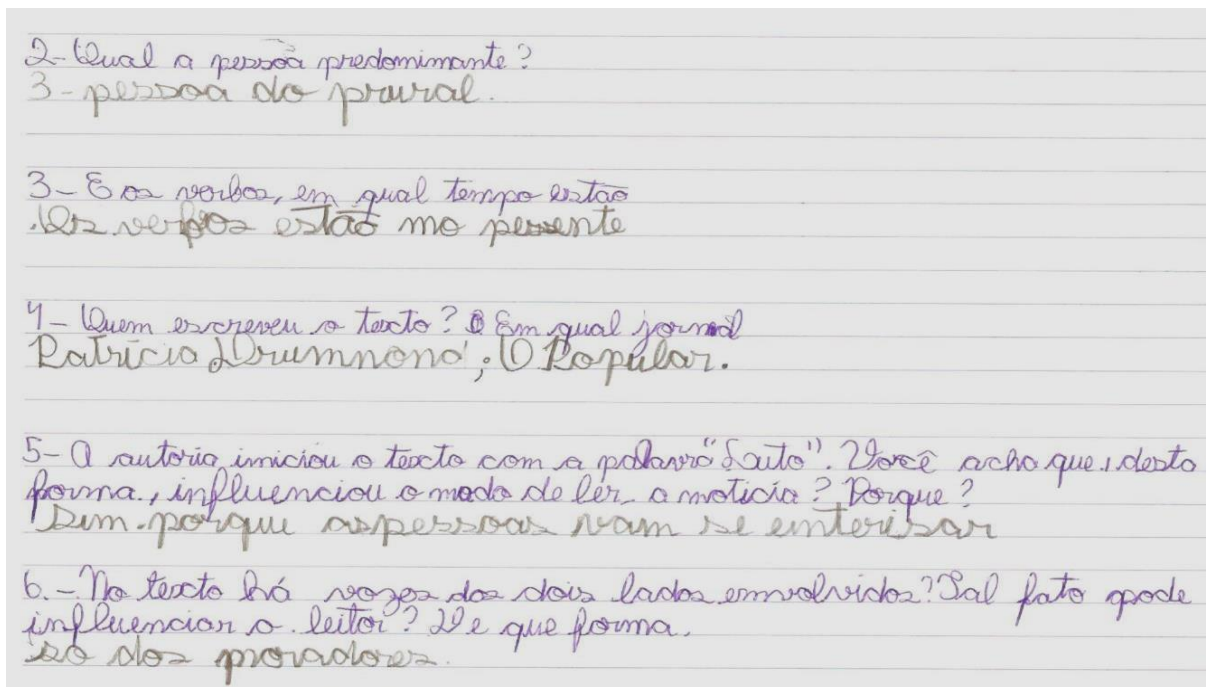 2- Qual a pessoa predominante?
3- pessoa do prural.
3- E os verbos, em qual tempo estão
.Os verbos estão no pesente
4- Quem escreveu o texto? Em qual jornal
Patrícia Drumnond; O Popular.
5- A autoria iniciou o texto com a palavra "Luto". Você acha que, desta
forma, influenciou o modo de ler a noticia? Porque?
Sim. porque aspessoas vam se enterisar
6.- No texto há vozes dos dois lados envolvidos? Tal fato pode
influenciar o leitor? De que forma.
so dos moradores.